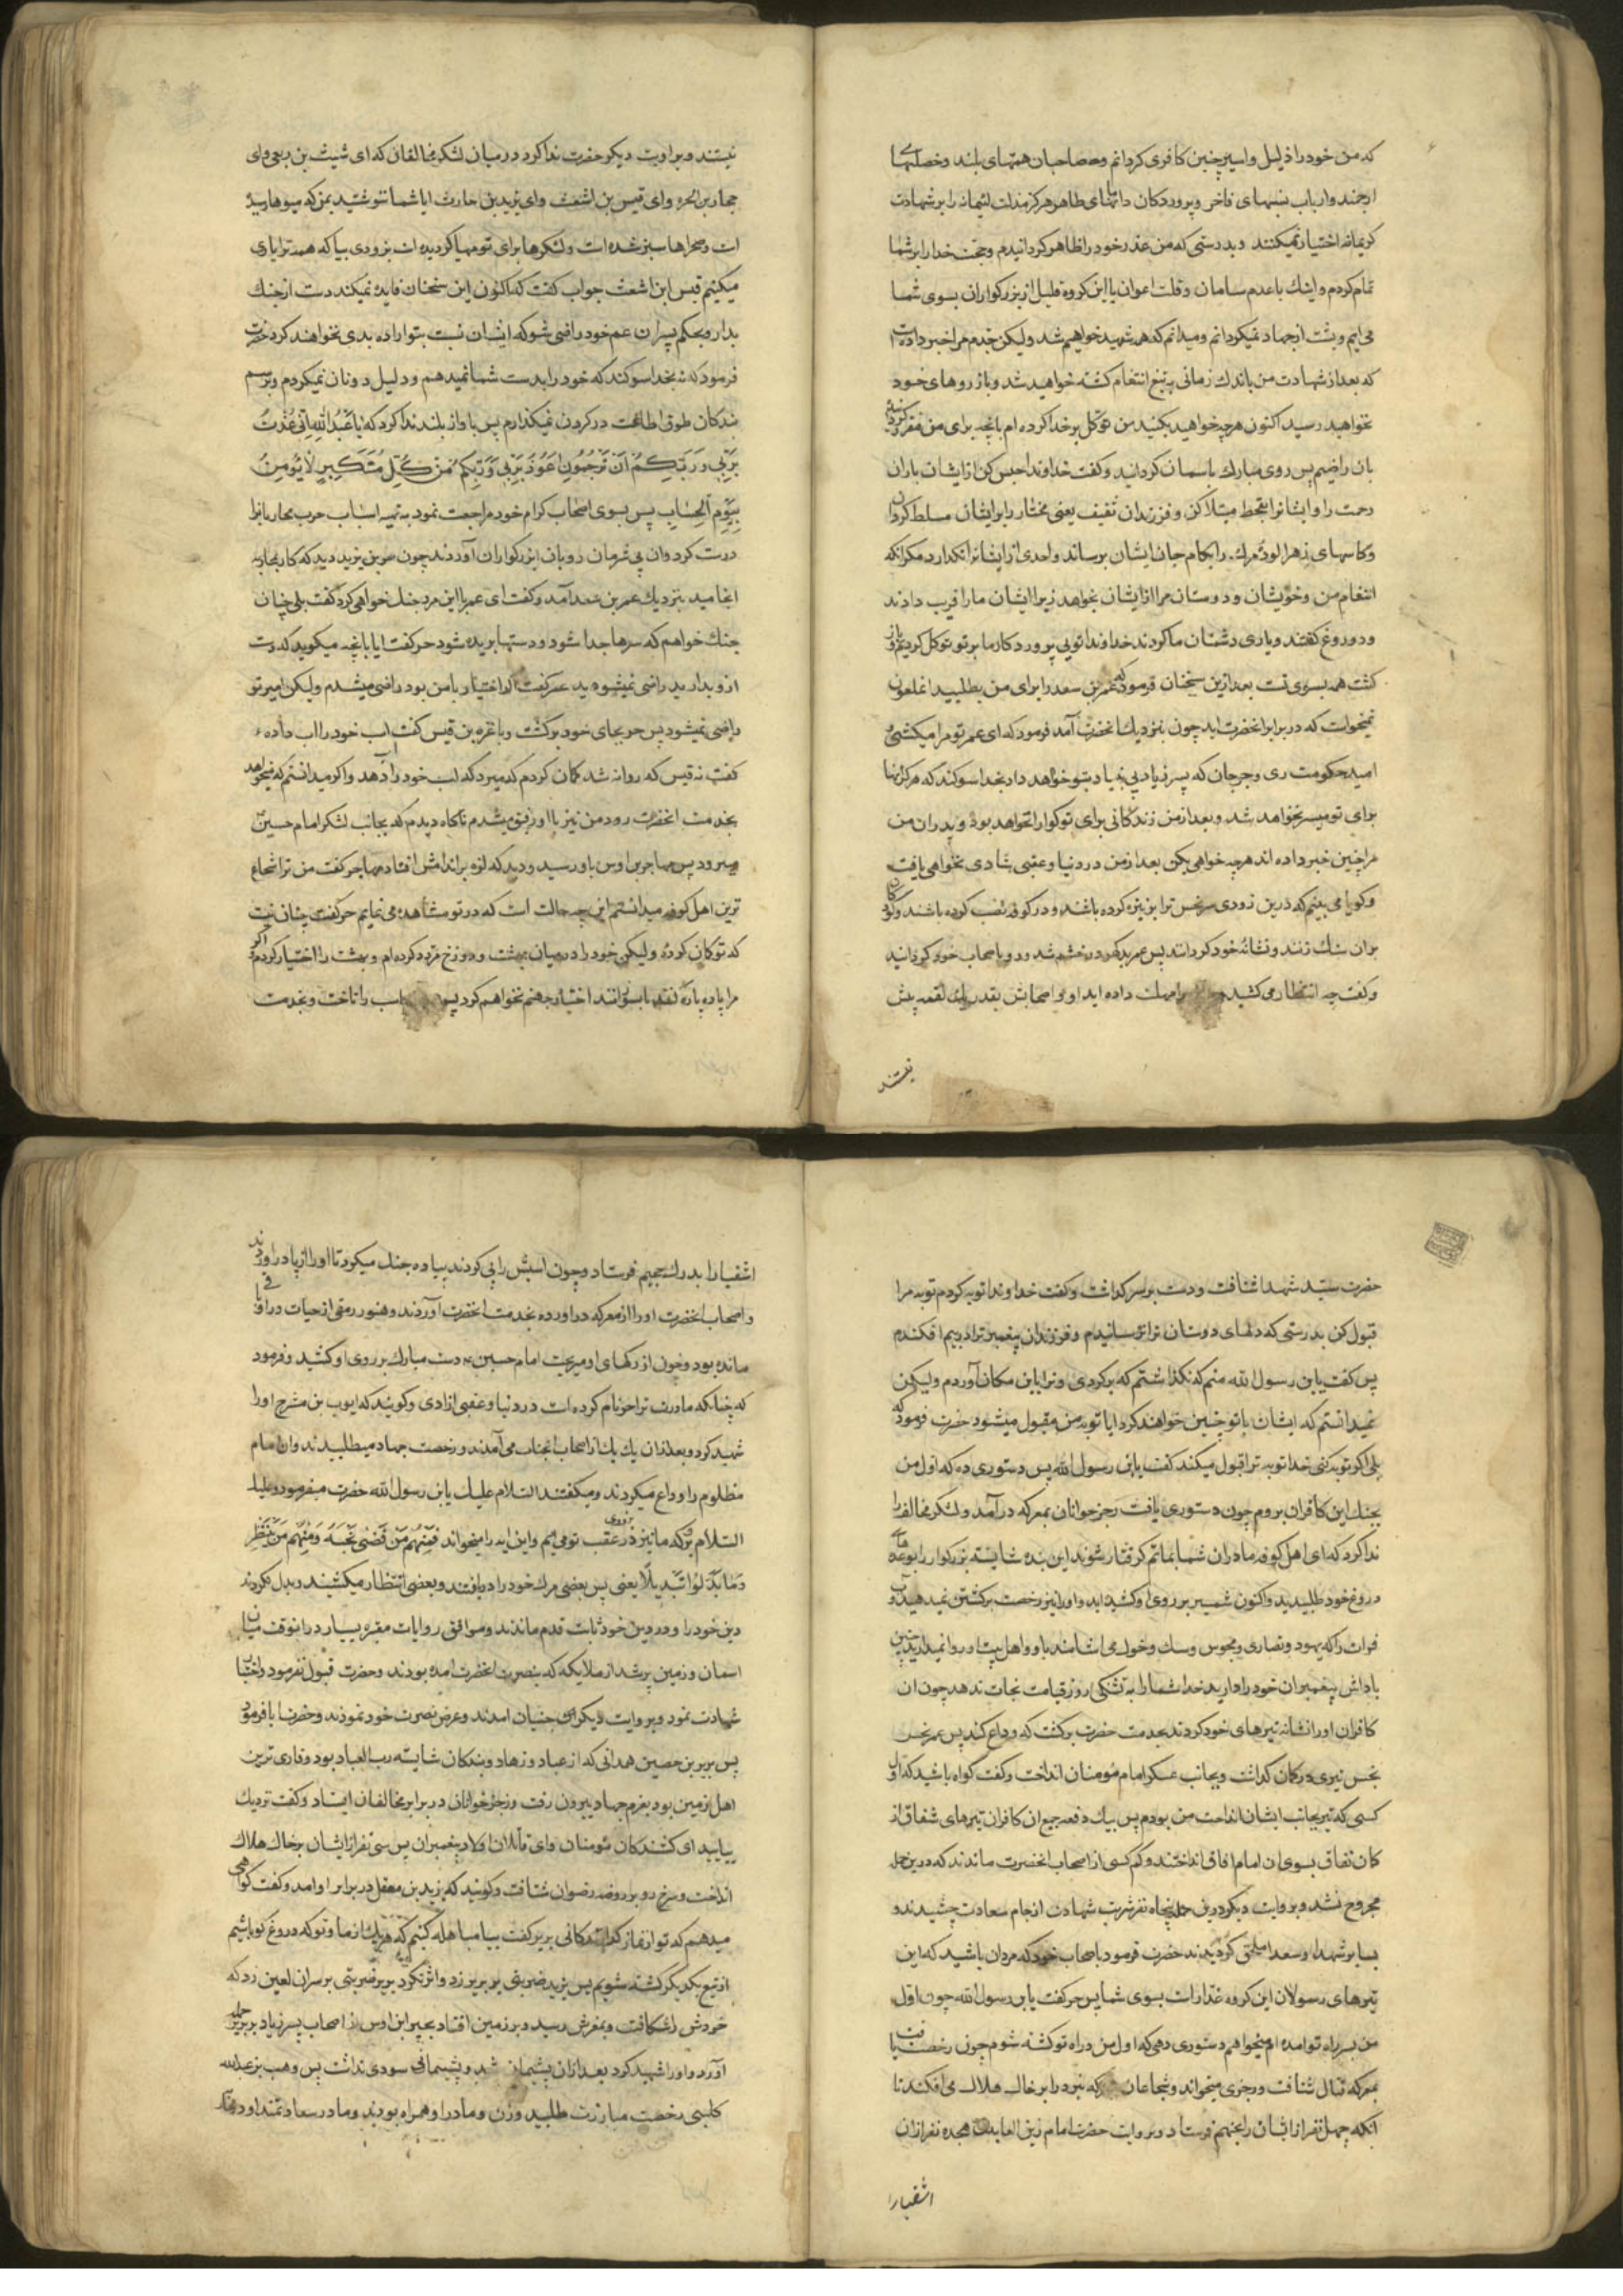 که من خود را ذلیل و اسیر چنین کافری کردانم وحه صاحبان همتهای بلند و خصلتهای
ارجمند و ارباب نسبهای فاخر و پروردکان دامنهای طاهر هرکز مذلت لئیمانه را بر شهادت
کریمانه اختیار نمیکنند و بدرستی که من عذر خود را ظاهر کردانیدم و حجت خدا را بر شما
تمام کردم و اینك با عدم سامان و قلت اعوان با این کروه قلیل از بزرکواران بسوی شما
می ایم و پشت از جهاد نمیکردانم و میدانم که همه شهید خواهیم شد ولیکن جدم مرا خبر داده است
که بعد از شهادت من باندك زمانی به تیغ انتقام کشته خواهید شد و بارزوهای خود
نخواهید رسید اکنون هرچه خواهید بکنید من توکل بر خدا کرده ام بانچه برای من مقرر کردانیده
بان راضیم پس روی مبارك باسمان کردانید و کفت خداوندا حبس کن از ایشان باران
رحمت را و ایشانرا بقحط مبتلا کن و فرزندان ثقیف یعنی مختار را برایشان مسلط کردان
و کاسهای زهر الود مرك را بکام جان ایشان برساند و احدی از ایشانرا نکذارد مکر انکه
انتقام من و خویشان و دوستان مرا از ایشان بخواهد زیرا ایشان ما را فریب دادند
و دروغ کفتند و یاری دشمنان ما کردند خداوندا تویی پروردکار ما بر تو توکل کردیم و باز
کشت همه بسوی تست بعد ازین سخنان فرمود که عمر بن سعد را برای من بطلبید انملعون
نمیخواست که در برابر انحضرت اید چون بنزدیك انحضرت آمد فرمود که ای عمر تو مرا میکشی
امید حکومت ری و جرجان که پسر زیاد بتو خواهد داد بخدا سوکند که هرکز اینها
برای تو میسر نخواهد شد و بعد از من زندکانی برای تو کوارا نخواهد بود و پدران من
مرا چنین خبر داده اند هرچه خواهی بکن بعد از من در دنیا و عقبی شادی نخواهی یافت
و کویا می بینم که درین زودی سر نحس ترا بر نیزه کرده باشند و در کوفه نصب کرده باشند و کودکان
بران سنك زنند و نشانه خود کردانند پس عمر بد کهر در خشم شد و رو باصحاب خود کردانید
و کفت چه انتظار می کشید مهلت داده اید او و اصحابش بقدر یك لقمه بیش
نیستند
نیستند و بروایت دیکر حضرت ندا کرد در میان لشکر مخالفان که ای شیث بن ربعی و ای
حجار بن الحره و ای قیس بن اشعث و ای یزید بن حارث ایا شما ننوشتید بمن که میوها رسیده
است و صحراها سبز شده است و لشکرها برای تو مهیا کردیده است بزودی بیا که همه ترا یاری
میکنیم قیس ابن اشعث جواب کفت که اکنون این سخنان فایده نمیکند دست از جنك
بدار و بحکم پسران عم خود راضی شو که ایشان نسبت بتو اراده بدی نخواهند کرد حضرت
فرمود که نه بخدا سوکند که خود را بدست شما نمیدهم و دلیل دونان نمیکردم و برسم
بندکان طوق اطاعت در کردن نمیکذارم پس باواز بلند ندا کرد که یَا عِبَادَ اللهِ اِنّی عُذتُ
بِرَبّی وَ رَبّکُم اَن تَرجُمُونِ اَعُوذُ بِرَبّی وَ رَبّکُم مِن کُلّ مُتَکَبّرٍ لَا یُؤمِنُ
بِیَومِ الحِسَابِ پس بسوی اصحاب کرام خود مراجعت نمود به تهیه اسباب حرب محاربانرا
درست کرد و ان بی شرمان رو بان بزرکواران آوردند چون حر بن یزید دید که کار بمحاربه
انجامید بنزدیك عمر بن سعد آمد و کفت ای عمر با این مرد جنك خواهی کرد کفت بلی چنان
جنك خواهم که سرها جدا شود و دستها بریده شود حر کفت ایا بانچه میکوید که دست
ازو بدارید راضی نمیشوید عمر کفت اکر اختیار با من بود راضی میشدم ولیکن امیر تو
راضی نمیشود پس حر بجای خود برکشت و با قره بن قیس کفت اسب خود را اب داده
کفت نه قیس که روانه شد کمان کردم که میرد که اسب خود را آب دهد و اکر میدانستم که میخواهد
بخدمت انحضرت رود من نیز با او رفیق میشدم ناکاه دیدم که بجانب لشکر امام حسین
میرود پس مهاجر بن اوس باو رسید و دید که لرزه بر اندامش افتاده مهاجر کفت من ترا شجاع
ترین اهل کوفه میدانستم این چه حالت است که در تو مشاهده می نمایم حر کفت چنان نیست
که تو کمان کرده ولیکن خود را در میان بهشت و دوزخ مردد کرده ام و بهشت را اختیار کردم اکر
مرا پاره پاره کنند یا بسوزانند اختیار جهنم نخواهم کرد پس اسب را تاخت و بخدمت
حضرت سید شهدا شتافت و دست بر سر کذاشت و کفت خداوندا توبه کردم توبه مرا
قبول کن بدرستی که دلهای دوستان ترا ترسانیدم و فرزندان پیغمبر ترا در بیم افکندم
پس کفت یا بن رسول الله منم که نکذاشتم که برکردی و ترا باین مکان آوردم ولیکن
نمیدانستم که ایشان با تو چنین خواهند کرد ایا توبه من مقبول میشود حضرت فرمود که
بلی اکر توبه کنی خدا توبه ترا قبول میکند کفت یابن رسول الله پس دستوری ده که اول من
بجنك این کافران بروم چون دستوری یافت رجز خوانان بمعرکه در آمد و لشکر مخالف را
ندا کرد که ای اهل کوفه مادران شما بماتم کرفتار شوند این بنده شایسته بزرکوار را بوعدهای
دروغ خود طلبیدید و اکنون شمشیر بر روی او کشیده اید و او را نیز رخصت برکشتن نمیدهید و آب
فرات را که یهود و نصاری و مجوس و سك و خوك می اشامند باو و اهل بیت او روا نمیدارید چنین
پاداش پیغمبران خود را دارید خدا شما را به تشنکی روز قیامت نجات ندهد چون ان
کافران او را نشانه تیرهای خود کردند بخدمت حضرت برکشت که وداع کند پس عمر نحس
نجس تیری در کمان کذاشت و بجانب عسکر امام مؤمنان انداخت و کفت کواه باشید که اول
کسی که تیر بجانب ایشان انداخت من بودم پس بیك دفعه جمیع ان کافران تیرهای شقاق از
کمان نفاق بسوی ان امام افاق انداختند و کم کسی از اصحاب انحضرت ماندند که درین حمله
مجروح نشد و بروایت دیکر درین حمله پنجاه نفر شربت شهادت از جام سعادت چشیدند و
بسایر شهدا و سعدا ملحق کردیدند حضرت فرمود باصحاب خود که مردان باشید که این
تیرهای رسولان این کروه غدار است بسوی شما پس حر کفت یابن رسول الله چون اول
من بسر راه تو امده ام میخواهم دستوری دهی که اول من در راه تو کشته شوم چون رخصت یافت
بمعرکه قتال شتافت و رجزی میخواند و شجاعان معرکه نبرد را بر خاك هلاك می افکند تا
انکه چهل نفر از ایشان را بجهنم فرستاد و بروایت حضرت امام زین العابدین هجده نفر ازان
اشقیارا
اشقیا را بدرك جحیم فرستاد و چون اسبش را پی کردند پیاده جنك میکرد تا او را از پا در اوردند
و اصحاب انحضرت او را از معرکه در اورده بخدمت انحضرت آوردند و هنوز رمقی از حیات در او باقی
مانده بود و خون از رکهای او میریخت امام حسین دست مبارك بر روی او کشید و فرمود
که چنانکه مادرت ترا حر نام کرده است در دنیا و عقبی ازادی و کویند که ایوب بن مشرح او را
شهید کرد و بعد ازان یك یك از اصحاب انجناب می آمدند و رخصت جهاد میطلبیدند و ان امام
مظلوم را وداع میکردند و میکفتند السلام علیك یابن رسول الله حضرت میفرمود و علیك
السلام برو که ما نیز بزودی در عقب تو می ایم و این ایه را میخواند فَمِنهُم مَن قَضٰی نَحبَهُ وَ مِنهُم مَن یَنتَظِر
وَ مَا بَدّلُوا تَبدِیلًا یعنی پس بعضی مرك خود را دریافتند و بعضی انتظار میکشیدند و بدل نکردند
دین خود را و در دین خود ثابت قدم ماندند و موافق روایات معتبره بسیار دران وقت میان
اسمان و زمین پر شد از ملایکه که بنصرت انحضرت امده بودند و حضرت قبول نفرمود و اختیار
شهادت نمود و بروایت دیکر جنیان امدند و عرض نصرت خود نمودند و حضرت ابا فرمود
پس بریر بن حصین همدانی که از عباد و زهاد و بندکان شایسته رب العباد بود و قاری ترین
اهل زمین بود بعزم جهاد بیرون رفت و رجز خوانان در برابر مخالفان ایستاد و کفت نزدیك
بیایید ای کشندکان مؤمنان و ای قاتلان اولاد پیغمبران پس سی نفر از ایشان بر خاك هلاك
انداخت و سرخ رو بروضه رضوان شتافت و کویند که یزید بن معقل در برابر او امد و کفت کواهی
میدهم که تو از کمراه کنندکانی بریر کفت بیا مباهله کنیم که هریك از ما و تو که دروغ کو باشیم
از تیغ یکدیکر کشته شویم پس یزید ضربتی بر بریر زد و اثر نکرد بریر ضربتی بر سر ان لعین زد که
خودش را شکافت و بمغزش رسید و بر زمین افتاد بجیر ابن اوس از اصحاب پسر زیاد بر بریر حمله
آورد و او را شهید کرد بعد ازان پشیمان شد و پشیمانی سودی نداشت پس وهب بن عبدالله
کلبی رخصت مبارزت طلبید و زن و مادر او همراه بودند و مادر سعادتمند او در